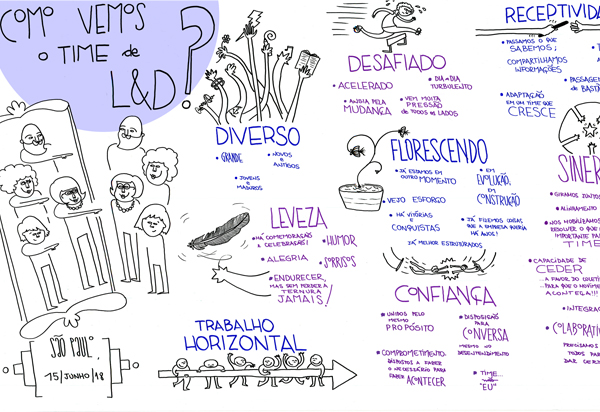 COMO VEMOS
O TIME de
L&D?
SÃO PAULO,
15/JUNHO/18
DIVERSO
• GRANDE
• NOVOS e ANTIGOS
• JOVENS e MADUROS
LEVEZA
• HÁ COMEMORAÇÃO
& CELEBRAÇÕES!
• HUMOR
• ALEGRIA
• SORRISOS
• ENDURECER
MAS SEM PERDER A
TERNURA
JAMAIS!
TRABALHO
HORIZONTAL
DESAFIADO
• ACELERADO
• DIA-a-DIA
TURBULENTO
• ANSIA PELA
MUDANÇA
• VEM MUITA
PRESSÃO
de TODOS os LADOS
FLORESCENDO
• JÁ ESTAMOS EM
OUTRO MOMENTO
• EM
EVOLUÇÃO,
EM
CONSTRUÇÃO
• VEJO ESFORÇO
• HÁ VITÓRIAS
e
CONQUISTAS
• JÁ FIZEMOS COISAS
QUE A EMPRESA QUERIA
HÁ ANOS!
JÁ MELHOR ESTRUTURADOS
CONFIANÇA
• UNIDOS PELO
MESMO
PROPÓSITO
• DISPOSIÇÃO
PARA
CONVERSA
MESMO NO
DESENTENDIMENTO
• COMPROMETIMENTO:
DISPOSTOS A FAZER
O NECESSÁRIO PARA
FAZER ACONTECER
• TIME...
"EU"
RECEPTIVIDA
• PASSAMOS O QUE
SABEMOS;
COMPARTILHAMOS
INFORMAÇÕES
• PASSAGEM
de BASTÃ
• ADAPTAÇÃO
EM UM TIME QUE
CRESCE
SINER
• GIRAMOS JUNTOS
• ALINHAMENTO
• NOS MOBILIZAMOS
RESOLVER O QUE
IMPORTANTE PARA
TIME
• CAPACIDADE DE
CEDER
A FAVOR DO COLETIVO
...PARA QUE O MOVIME
ACONTEÇA!!!
• INTEGRA
• COLABORATIV
PRECISAMOS
TODOS PARA
DAR CERT